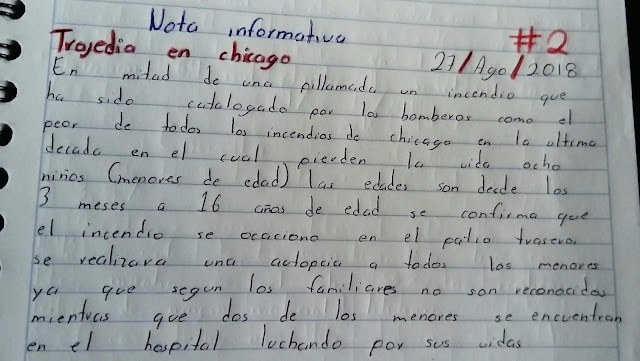 Nota informativa
#2
Trajedia en chicago
27/Ago/2018
En mitad de una pillamada un incendio que
ha sido catalogado por los bomberos como el
peor de todos los incendios de chicago en la ultima
decada en el cual pierden la vida ocho
niños (menores de edad) las edades son desde los
3 meses a 16 años de edad se confirma que
el incendio se ocaciono en el patio trasero.
se realizara una autopcia a todos los menores
ya que segun los familiares no son reconocidos
mientras que dos de los menores se encuentran
en el hospital luchando por sus vidas